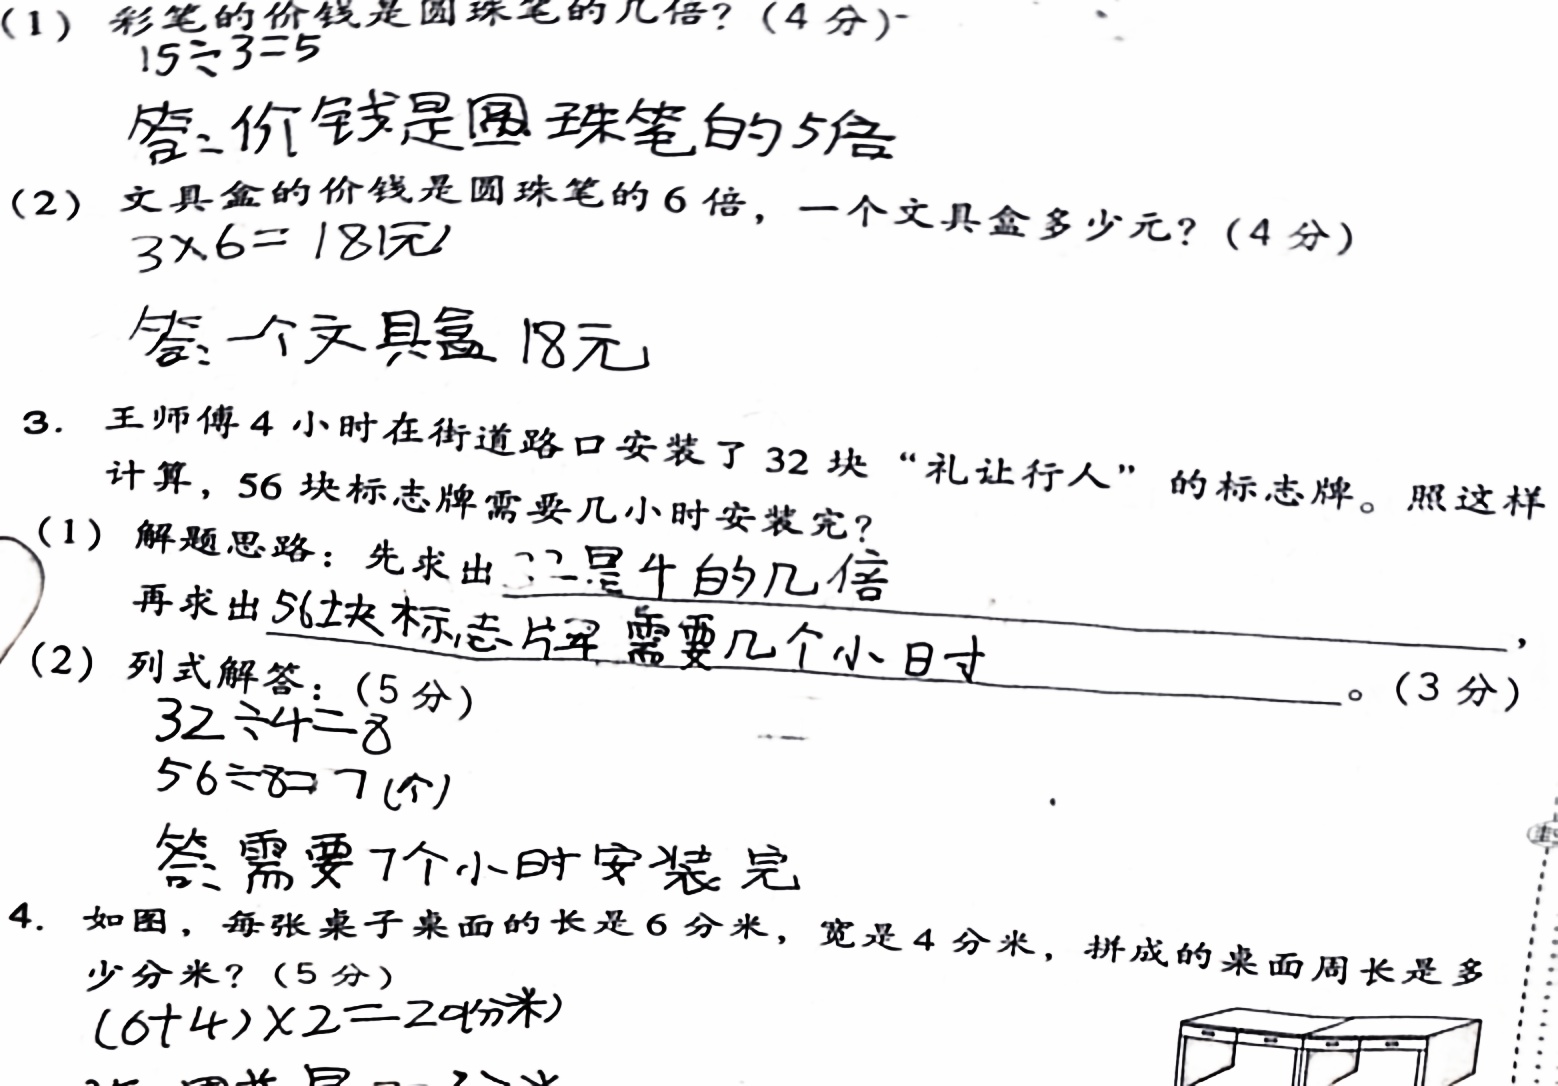 (1) 彩笔的价钱是圆珠笔的几倍?(4分)
15÷3=5
答:价钱是圆珠笔的5倍
(2) 文具盒的价钱是圆珠笔的6倍，一个文具盒多少元?(4分)
3×6=18(元)
答:一个文具盒18元
3. 王师傅4小时在街道路口安装了32块“礼让行人”的标志牌。照这样
计算，56块标志牌需要几小时安装完?
(1) 解题思路:先求出32是4的几倍，
再求出56块标志牌需要几个小时。(3分)
(2) 列式解答:(5分)
32÷4=8
56÷8=7(个)
答:需要7个小时安装完
4. 如图，每张桌子桌面的长是6分米，宽是4分米，拼成的桌面周长是多
少分米?(5分)
(6+4)×2=20(分米)